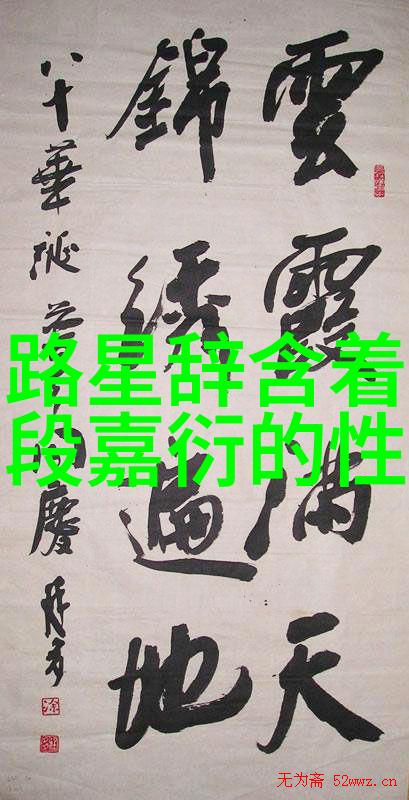 路星辞含着
段嘉衍的性
雲霞滿天
錦綉遍地
八十華誕
慶
无为斋 52wwz.cn